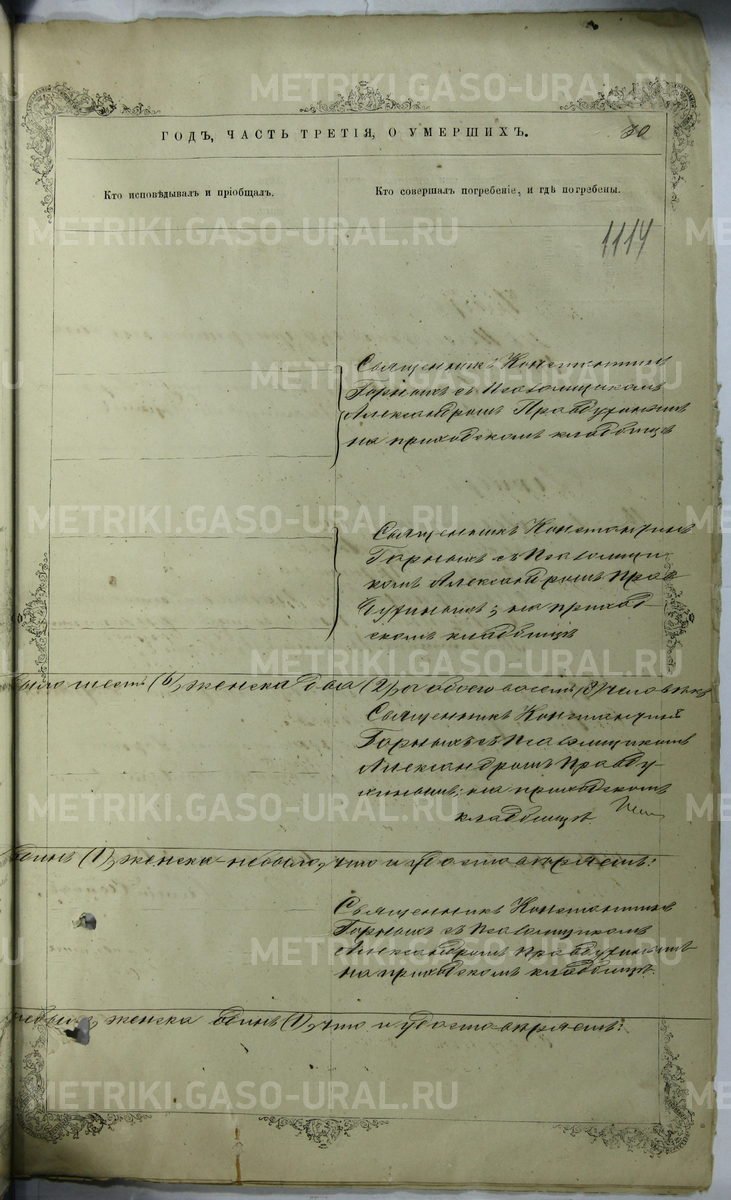 ГОДЪ, ЧАСТЬ ТРЕТІЯ, О УМЕРШИХЪ.
30
Кто исповѣдывалъ и пріобщалъ.
Кто совершалъ погребеніе, и гдѣ погребены.
1114
Священникъ Константинъ
Горныхъ съ Псаломщикомъ
Александромъ Правдухинымъ
на приходскомъ кладбищѣ
Священникъ Константинъ
Горныхъ съ Псаломщи-
комъ Александромъ Прав-
духинымъ; на приход-
скомъ кладбищѣ
было шесть (6), женска два (2), а обоего восемь (8) человѣкъ
Священникъ Константинъ
Горныхъ съ Псаломщикомъ
Александромъ Правду-
хинымъ; на приходскомъ
кладбищѣ.
одинъ (1), женска-небыло, что и удостовѣряемъ:
Священникъ Константинъ
Горныхъ съ Псаломщикомъ
Александромъ Правдухинымъ
на приходскомъ кладбищѣ.
небыло, женска одинъ (1), что и удостовѣряемъ:
METRIKI.GASO-URAL.RU